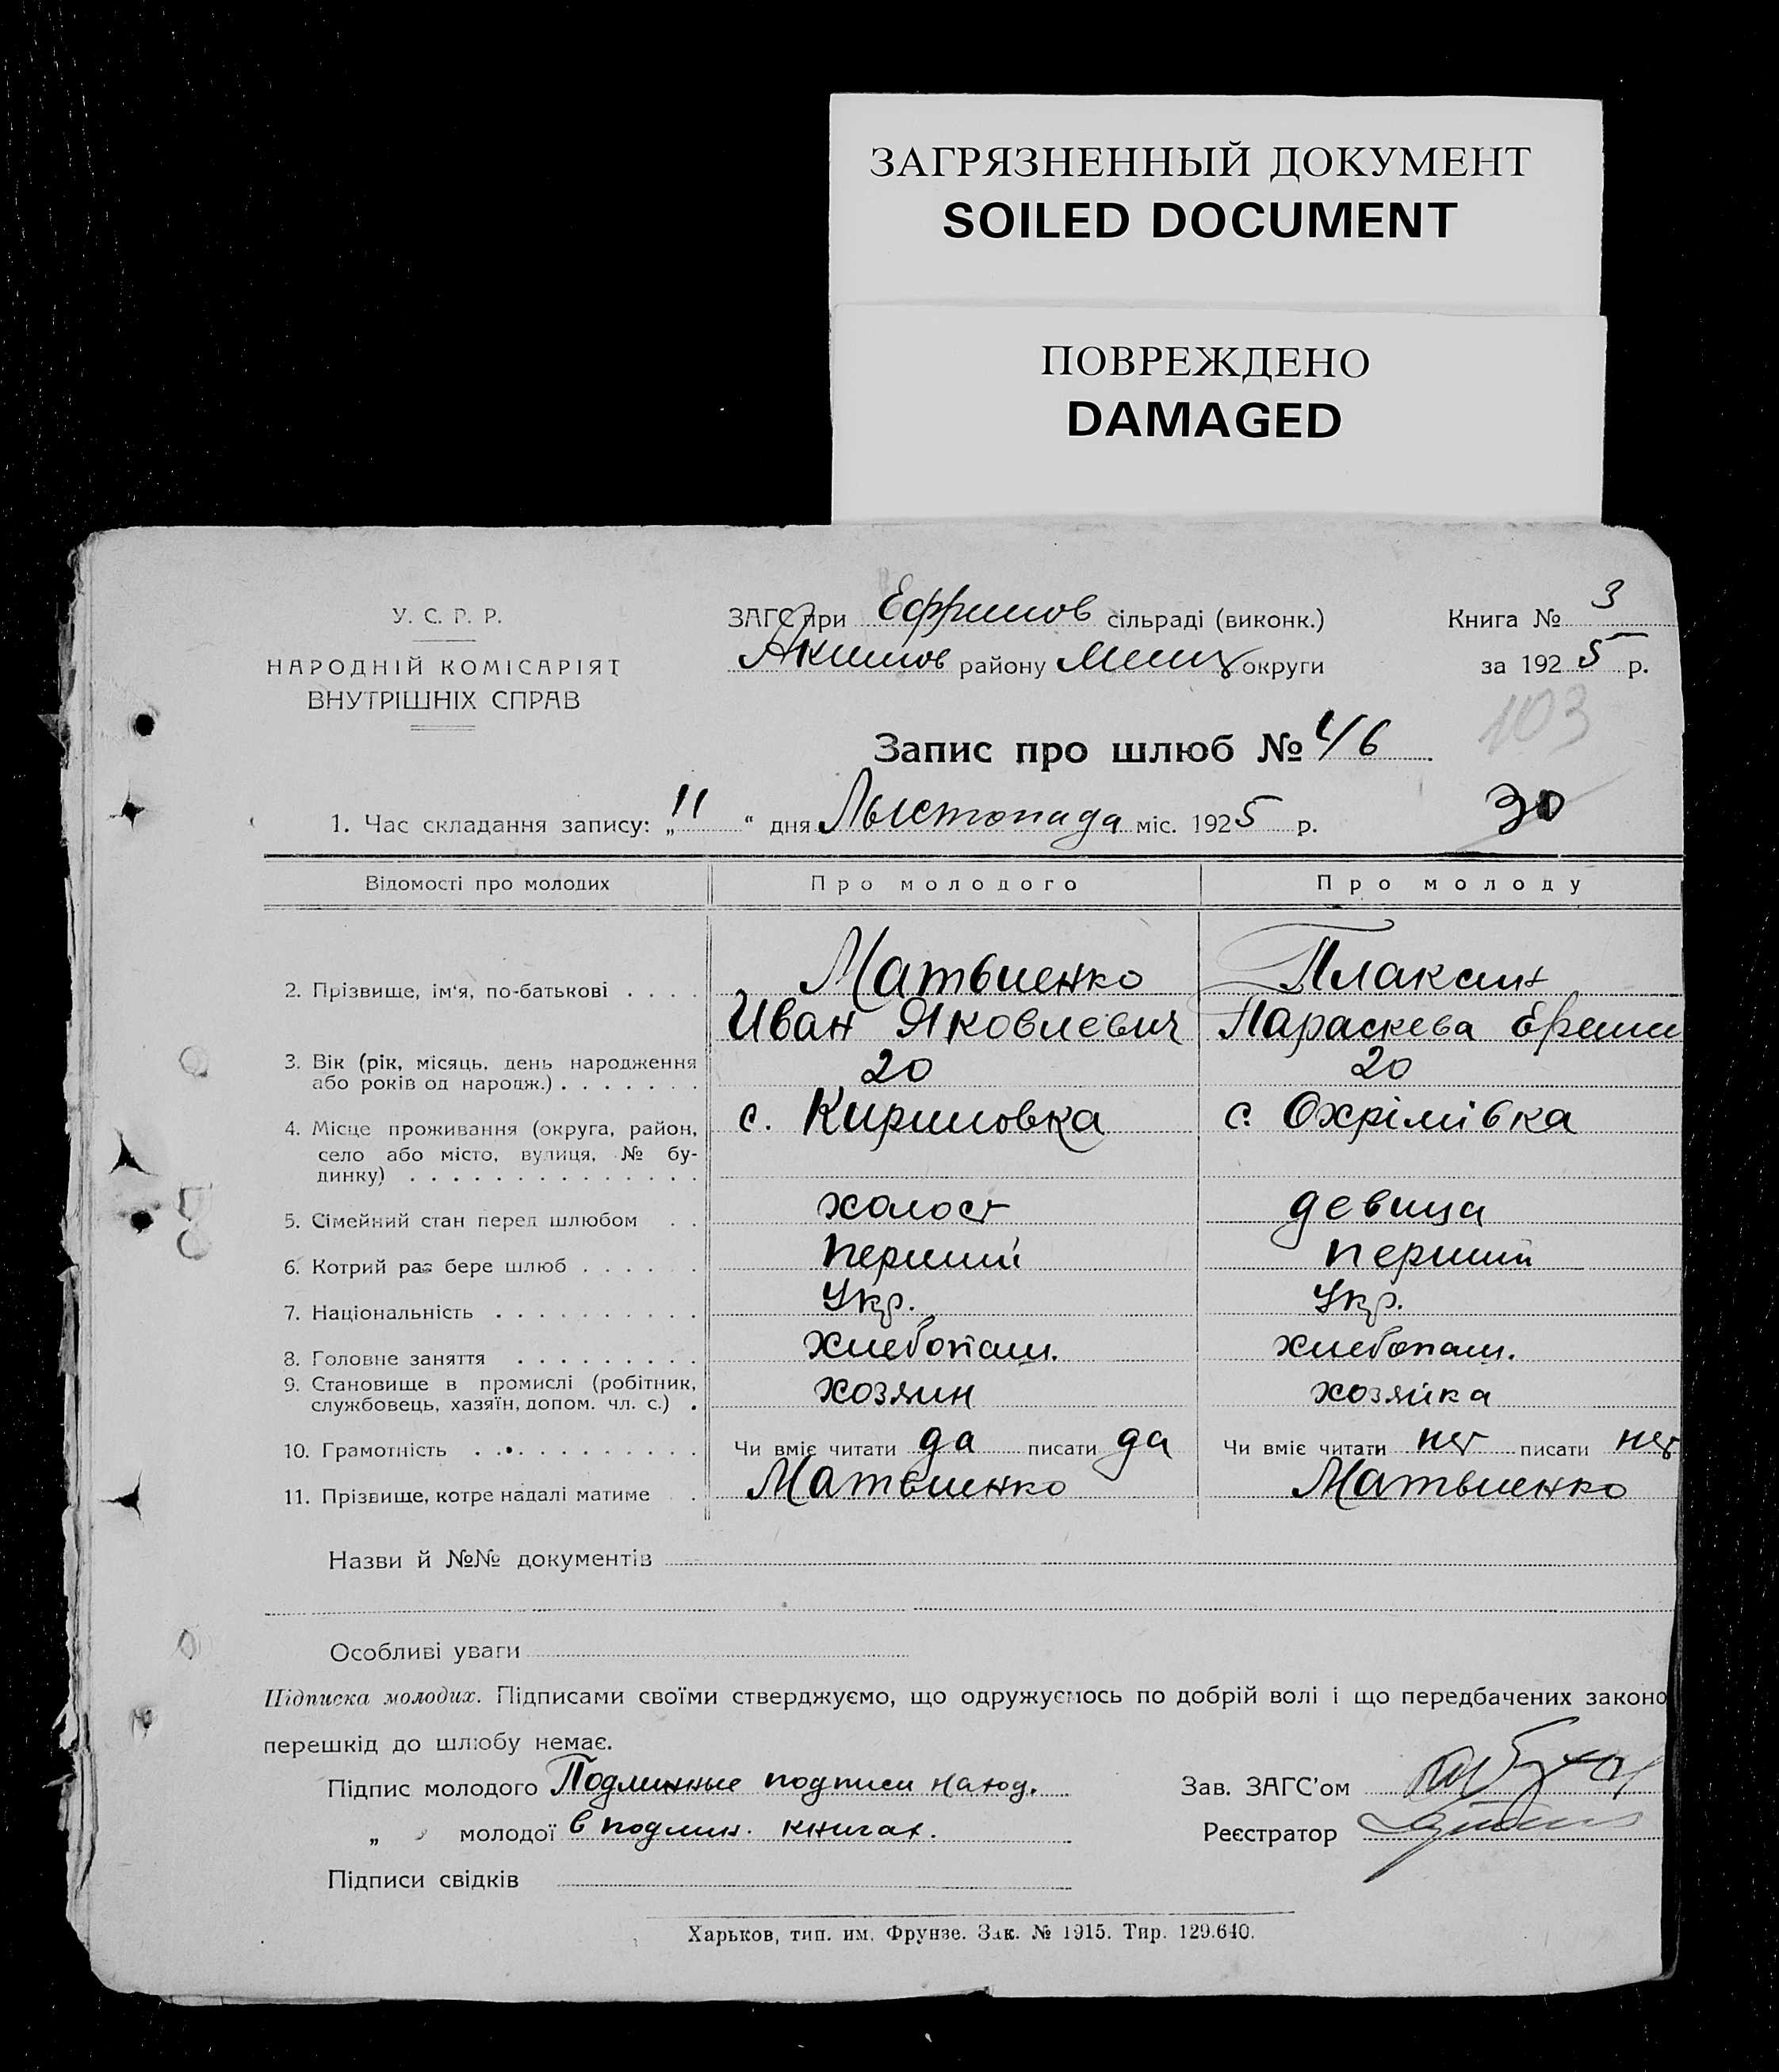 ЗАГРЯЗНЕННЫЙ ДОКУМЕНТ
SOILED DOCUMENT
ПОВРЕЖДЕНО
DAMAGED
У. С. Р. Р.
НАРОДНІЙ КОМІСАРІЯТ
ВНУТРІШНІХ СПРАВ
ЗАГС при Ефримов сільраді (виконк.)
Акимов району Мелит округи
Книга № 3
за 1925 р.
103
Запис про шлюб № 46
1. Час складання запису: „11“ дня Лыстопада міс. 1925 р.
30
Відомості про молодих Про молодого Про молоду
2. Прізвище, ім'я, по-батькові . . . . Матвиенко Плаксин
Иван Яковлевич Параскева Ефреми
3. Вік (рік, місяць, день народження
або років од народж.) . . . . . . . 20 20
4. Місце проживання (округа, район, с. Кирпловка с. Охрімівка
село або місто, вулиця, № бу-
динку) . . . . . . . . . . . . . .
5. Сімейний стан перед шлюбом . . холост девица
6. Котрий раз бере шлюб . . . . . . перший перший
7. Національність . . . . . . . . . . Укр. Укр.
8. Головне заняття . . . . . . . . . хлебопаш. хлебопаш.
9. Становище в промислі (робітник,
службовець, хазяїн, допом. чл. с.) . хозяин хозяйка
10. Грамотність . . . . . . . . . . . Чи вміє читати да писати да Чи вміє читати нет писати нет
11. Прізвище, котре надалі матиме . Матвиенко Матвиенко
Назви й №№ документів
Особливі уваги
Підписка молодих. Підписами своїми стверджуємо, що одружуємось по добрій волі і що передбачених законо
перешкід до шлюбу немає.
Підпис молодого Подлинные подписи наход.
„ молодої в подлин. книгах.
Підписи свідків
Зав. ЗАГС'ом
Реєстратор
Харьков, тип. им. Фрунзе. Зак. № 1915. Тир. 129.640.